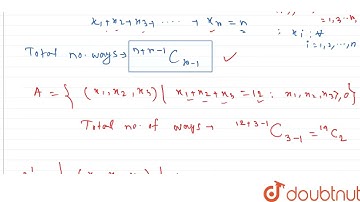 x₁+x₂+x₃+ ⋯⋯ + xₙ = n
= 1,3..n,
: xᵢ, ∀
i=1,2,...,n
Total no. ways → ⁿ⁺ⁿ⁻¹Cₙ₋₁ ✓
A = { (x₁,x₂,x₃) | x₁+x₂+x₃ = 12 : x₁,x₂,x₃ ≥,0 }
Total no. of ways → ¹²⁺³⁻¹C₃₋₁ = ¹⁴C₂
doubtnut